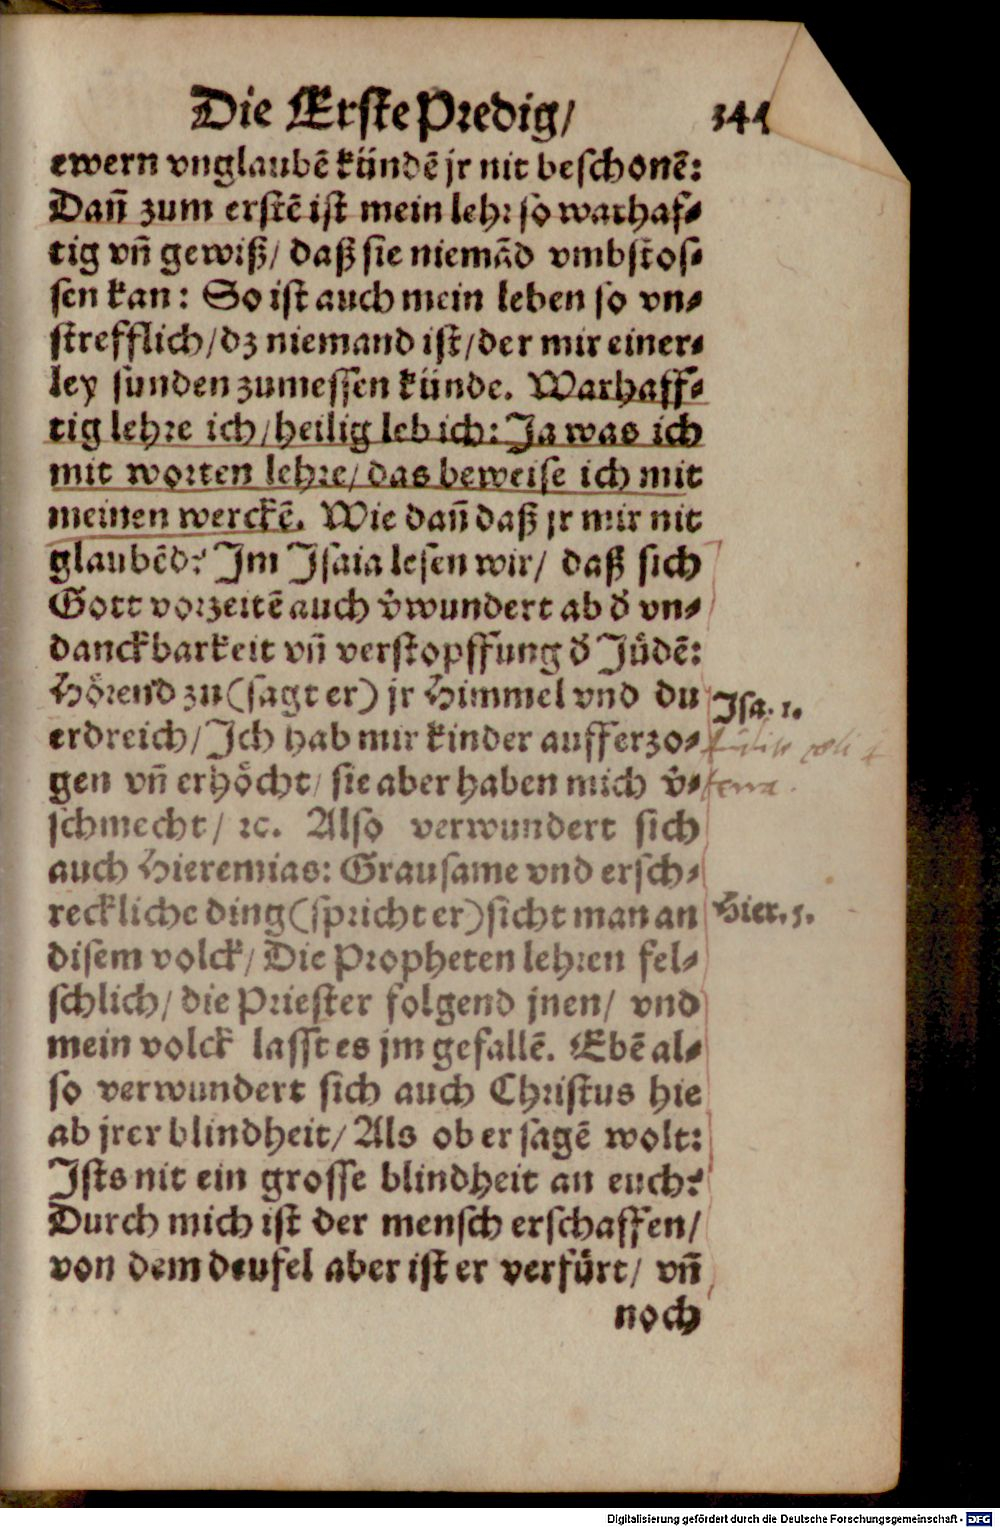 Die Erste Predig/
ewern vnglaubē kündē jr nit beschonē:
Dañ zum erstē ist mein lehr so warhaf-
tig vñ gewiß/ daß sie niemād vmbstos-
sen kan: So ist auch mein leben so vn-
strefflich/dz niemand ist/der mir einer-
ley sünden zumessen künde. Warhaff-
tig lehre ich/heilig leb ich: Ja was ich
mit worten lehre/das beweise ich mit
meinen werckē. Wie dañ daß jr mir nit
glaubēd? Im Isaia lesen wir/ daß sich
Gott vorzeitē auch v̄wundert ab d̄ vn-
danckbarkeit vñ verstopffung d̄ Jüdē:
Hörend zu (sagt er) jr Himmel vnd du
Isa. 1.
erdreich/Ich hab mir kinder aufferzo-
gen vñ erhöcht/ sie aber haben mich v̄-
schmecht/ ꝛc. Also verwundert sich
auch Hieremias: Grausame vnd ersch-
reckliche ding (spricht er) sicht man an
Hier. 5.
disem volck/ Die Propheten lehren fel-
schlich/ die Priester folgend jnen/ vnd
mein volck lasst es jm gefallē. Ebē al-
so verwundert sich auch Christus hie
ab jrer blindheit/Als ob er sagē wolt:
Ists nit ein grosse blindheit an euch?
Durch mich ist der mensch erschaffen/
von dem deufel aber ist er verfürt/ vñ
noch
Digitalisierung gefördert durch die Deutsche Forschungsgemeinschaft - DFG